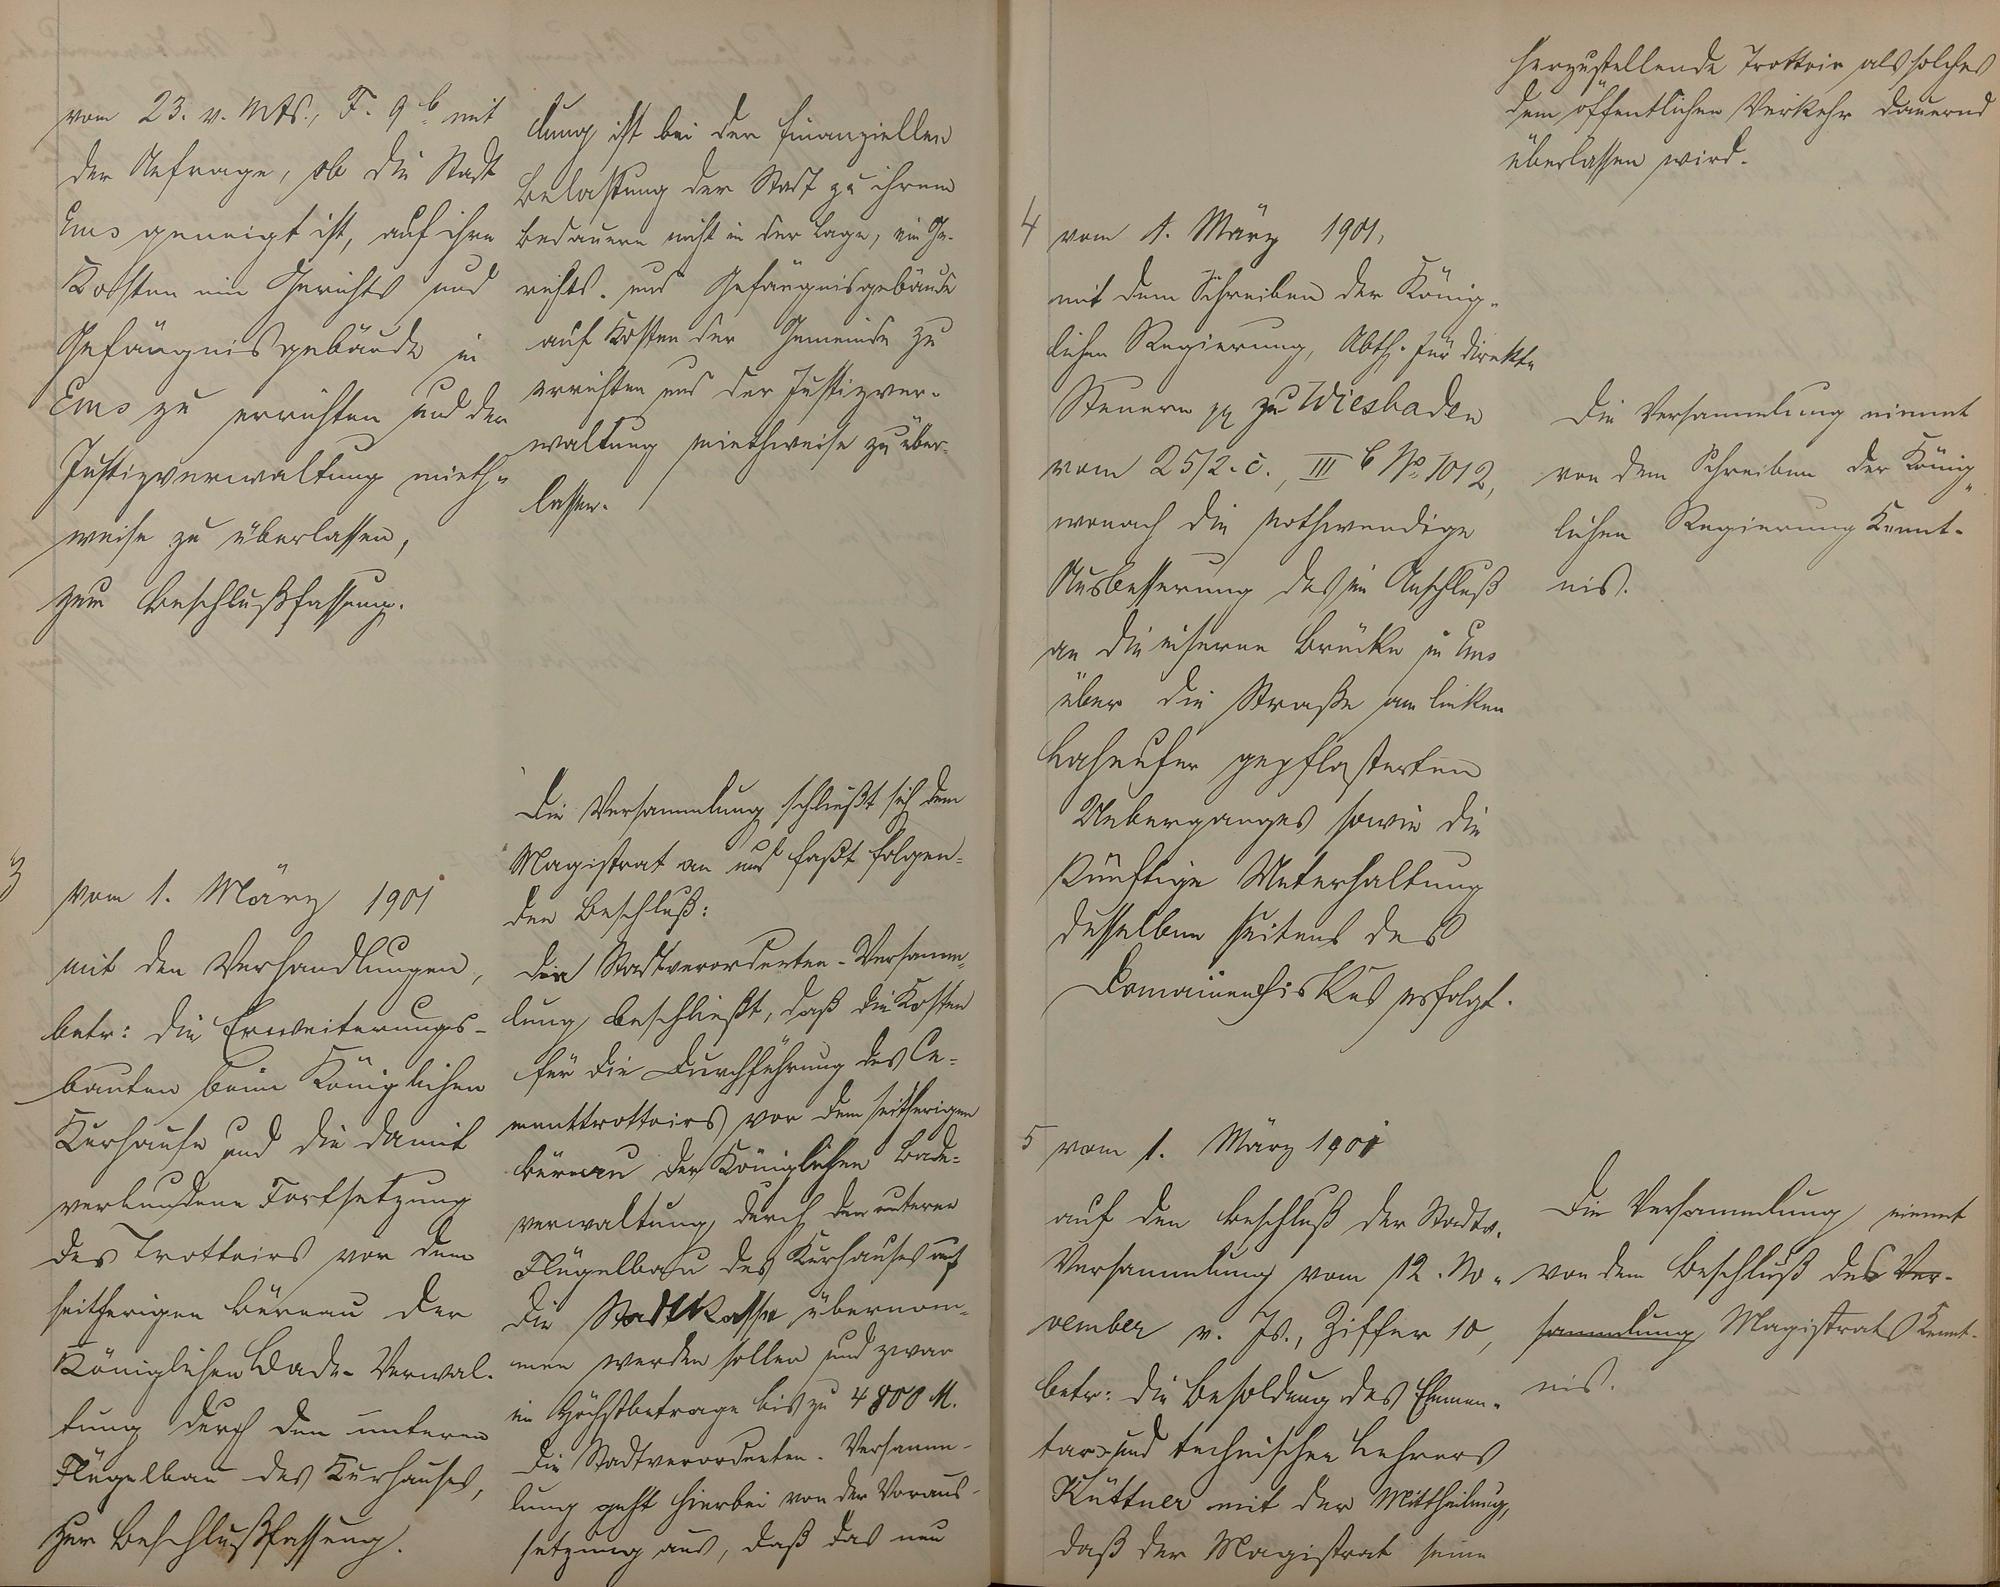 vom 23. v. Mts., F. 9 b mit
der Anfrage, ob die Stadt
Ems geneigt ist, auf ihre
Kosten ein Gerichts und
Gefängnisgebäude in
Ems zu errichten und der
Justizverwaltung mieth-
weise zu überlassen,
zum Beschlußfassung.
3
vom 1. März 1901
mit den Verhandlungen,
betr: die Erweiterungs-
bauten beim Königlichen
Kurhause und die damit
verbundene Fortsetzung
des Trottoirs vor dem
seitherigen Büreau der
Königlichen Bade-Verwal-
tung durch den unteren
Flügelbau des Kurhauses,
zur Beschlußfassung.
dung ist bei der finanziellen
Belastung der Stadt zu ihrem
Bedauern nicht in der Lage, ein Ge-
richts- und Gefängnisgebäude
auf Kosten der Gemeinde zu
errichten und der Justizver-
waltung miethweise zu über-
lassen.
Die Versammlung schließt sich dem
Magistrat an und faßt folgen-
den Beschluß:
Die Stadtverordneten-Versamm-
lung beschließt, daß die Kosten
für die Durchführung des Ce-
menttrottoirs vor dem seitherigen
Büreau der Königlichen Bade-
verwaltung, durch den unteren
Flügelbau des Kurhauses auf
die Stadtkasse übernom-
men werden sollen und zwar
im Höchstbetrage bis zu 4800 M.
Die Stadtverordneten-Versamm-
lung geht hierbei von der Voraus-
setzung aus, daß das neu
herzustellende Trottoir als solches
dem öffentlichen Verkehr dauernd
überlassen wird.
4 vom 1. März 1901,
mit dem Schreiben der König-
lichen Regierung, Abth. für direkte
Steuern pp zu Wiesbaden
vom 25/2. c., III b No 1012,
wonach die nothwendige
Ausbesserung des im Anschluß
an die eiserne Brücke in Ems
über die Straße am linken
Lahnufer gepflasterten
Ueberganges sowie die
künftige Unterhaltung
desselben seitens des
Domainenfiskus erfolgt.
Die Versammlung nimmt
von dem Schreiben der König-
lichen Regierung Kennt-
nis.
5 vom 1. März 1901
auf den Beschluß der Stadtv.
Versammlung vom 12. No-
vember v. Js., Ziffer 10,
betr: die Besoldung des Elemen-
tar- und technischen Lehrers
Küttner mit der Mittheilung,
daß der Magistrat seine
Die Versammlung nimmt
von dem Beschluß des Ver-
sammlung Magistrats Kennt-
nis.